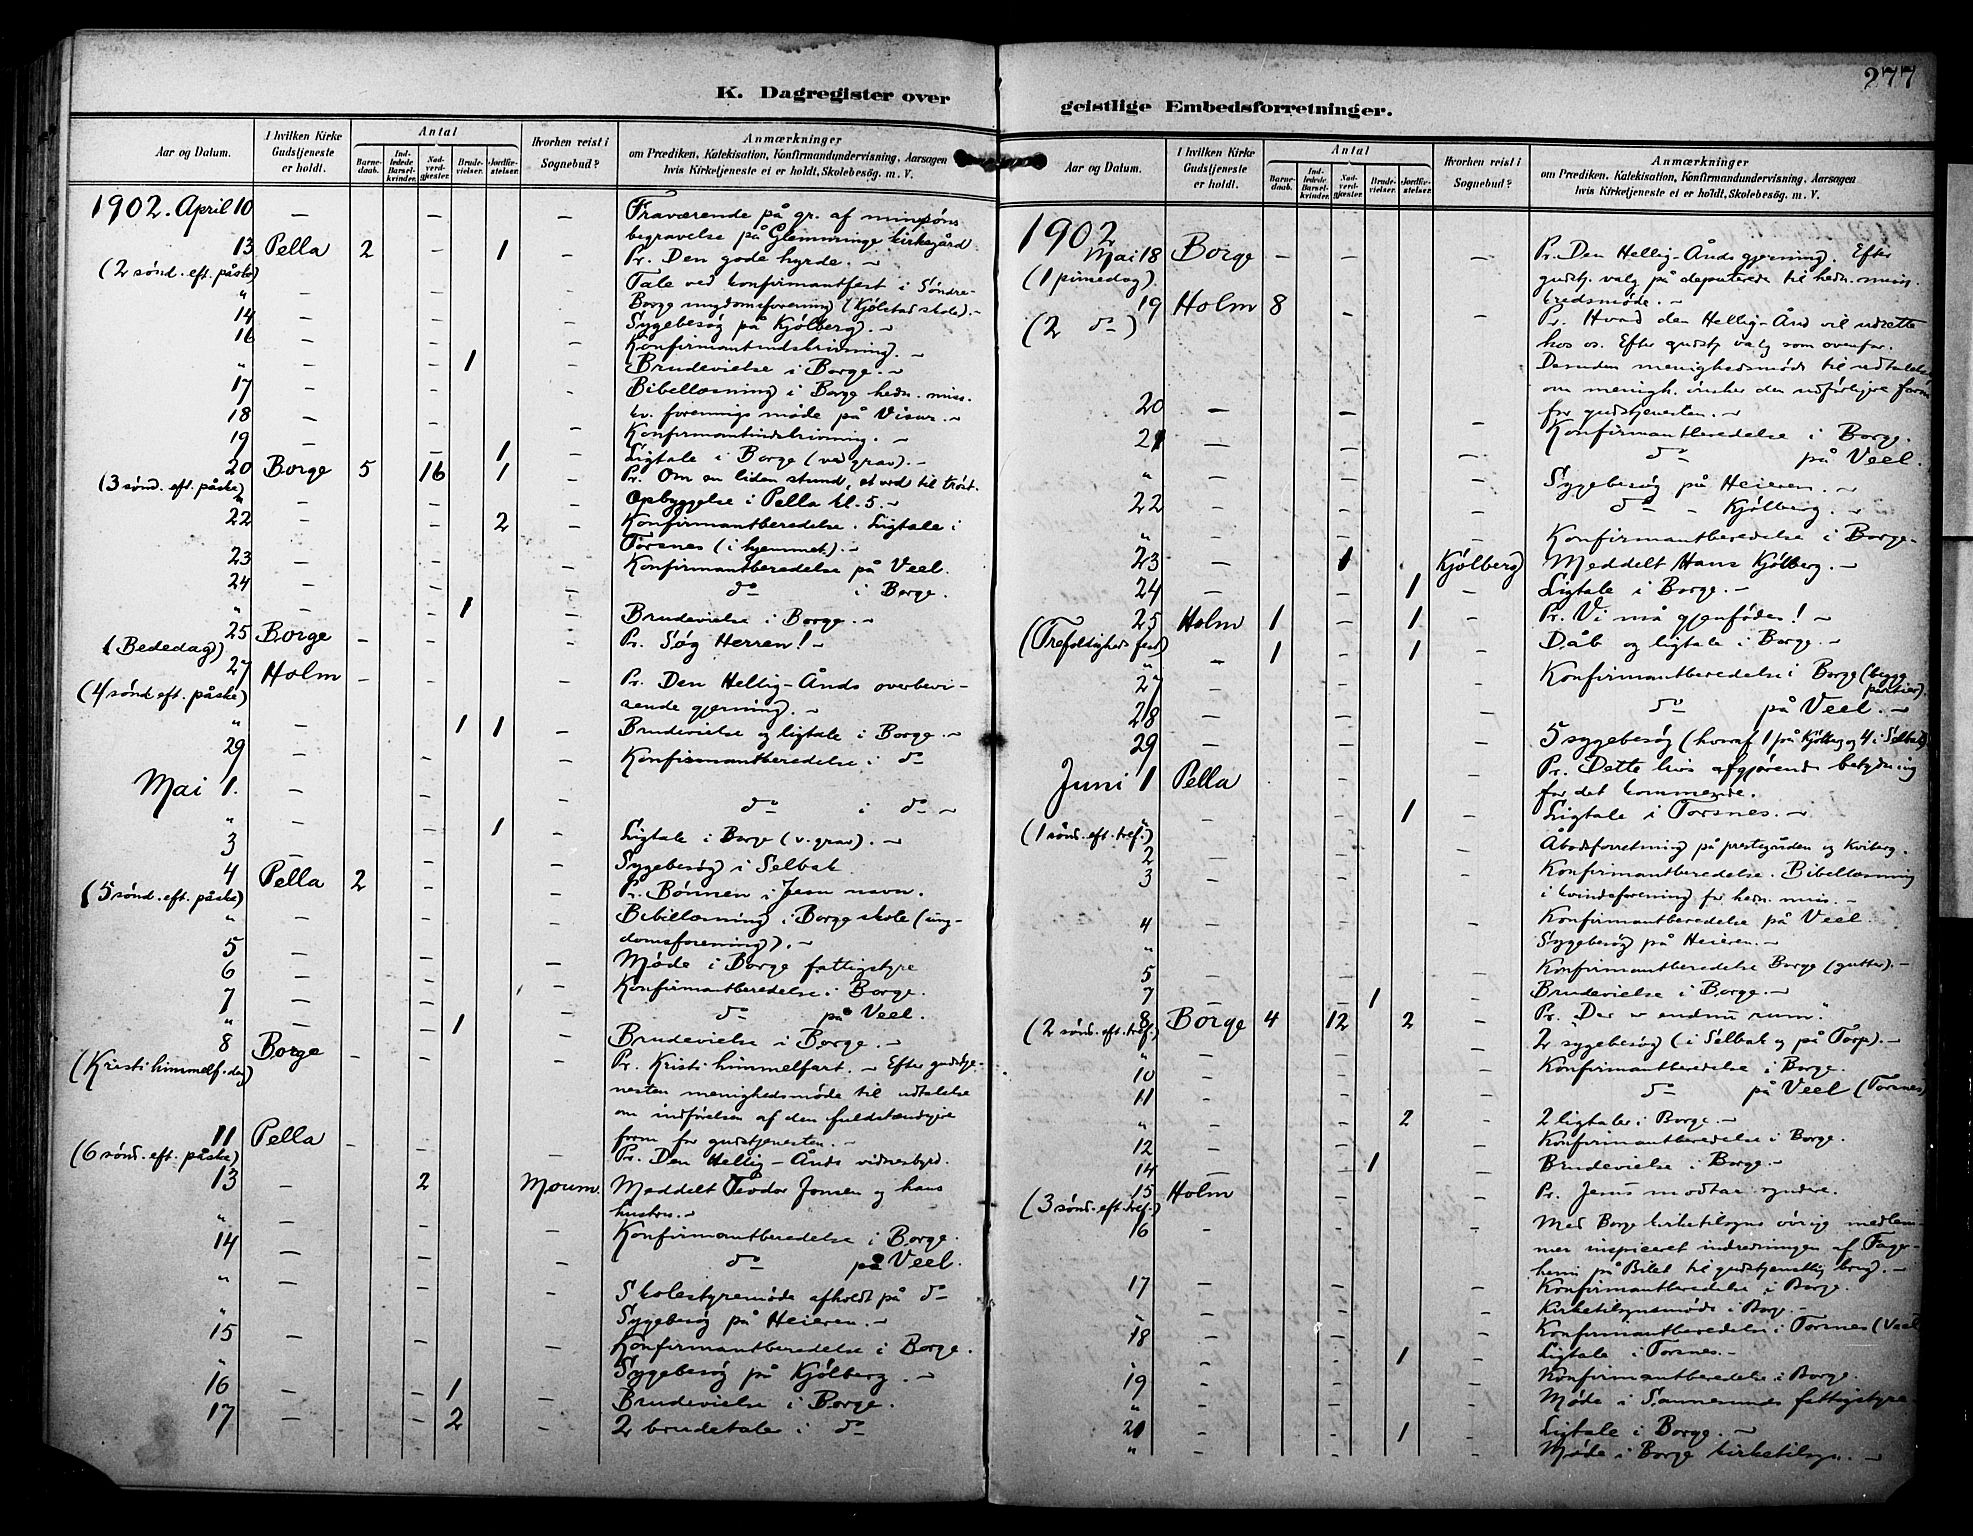 277
K. Dagregister over
Aar og Datum.
I hvilken Kirke Gudstjeneste er holdt.
Antal
Barne-daab.
Ind-ledede Barsel-kvinder.
Nad-verd-gjæster.
Brude-vielser.
Jordfæ-stelser.
Hvorhen reist i Sognebud?
Anmærkninger
om Prædiken, Katekisation, Konfirmandundervisning, Aarsagen
hvis Kirketjeneste ei er holdt, Skolebesøg. m. V.
1902. April 10 — — — Fraværende på gr. af min søns
begravelse på Glemminge kirkegård
13 Pella 2 — 1 — Pr. Den gode hyrde. —
(2 sønd. eft. påske)
" — — — Tale ved konfirmantfest i Søndre
Borge ungdomsforening (Kjølstad skole). —
14 — — — Sygebesøg på Kjølberg). —
16 — — — Konfirmantindskrivning. —
" — — 1 — Brudevielse i Borge. —
17 — — — Bibellæsning i Borge hedn. miss.
kv. forenings møde på Visur. —
18 — — — Konfirmantindskrivning. —
19 — — 1 — Ligtale i Borge (ved grav). —
20 Borge 5 16 1 — Pr. Om en liden stund, et ord til trøst.
(3 sønd. eft. påske)
" Opbyggelse i Pella kl. 5. —
22 — — 2 — Konfirmantberedelse. Ligtale i
Torsnes (i hjemmet). —
23 — — — Konfirmantberedelse på Veel.
24 — — — do i Borge.
" — — 1 — Brudevielse i Borge. —
25 Borge — — — Pr. Søg Herren! —
(Bededag)
27 Holm — — — Pr. Den Hellig-Ånds overbevi-
(4 sønd. eft. påske)
sende gjerning). —
" — — 1 1 — Brudevielse og ligtale i Borge. —
29 — — — Konfirmantberedelse i do
Mai 1. — — — do i do —
" — — 1 — Ligtale i Borge (v. grav). —
3 — — — Sygebesøg i Selbak.
4 Pella 2 — — Pr. Bønnen i Jesu navn.
(5 sønd. eft. påske)
" — — — Bibellæsning i Borge skole (ung-
domsforening). —
5 — — — Møde i Borge fattigstyre
6 — — — Konfirmantberedelse i Borge.
7 — — — do på Veel.
" — — 1 — Brudevielse i Borge. —
8 Borge — — — Pr. Kristi himmelfart. — Efter gudstje-
(Kristi himmelf. dag)
nesten menighedsmøde til udtalelse
om indførelsen af den fuldstændige
form for gudstjenesten. —
11 Pella — — — Pr. Den Hellig-Ånds vidnesbyrd.
(6 sønd. eft. påske)
13 — 2 Moum. Meddelt Teodor Jonsen og hans
hustru. —
" — — — Konfirmantberedelse i Borge.
14 — — — do på Veel.
" — — — Skolestyremøde afholdt på do
" Sygebesøg på Heieren. —
15 — — — Konfirmantberedelse i Borge.
" Sygebesøg på Kjølberg. —
16 — 1 — Brudevielse i Borge.
17 — 2 — 2 brudetaler i do
geistlige Embedsforretninger.
Aar og Datum.
I hvilken Kirke Gudstjeneste er holdt.
Antal
Barne-daab.
Ind-ledede Barsel-kvinder.
Nad-verd-gjæster.
Brude-vielser.
Jordfæ-stelser.
Hvorhen reist i Sognebud?
Anmærkninger
om Prædiken, Katekisation, Konfirmandundervisning, Aarsagen
hvis Kirketjeneste ei er holdt, Skolebesøg. m. V.
1902
Mai 18 Borge — — — Pr. Den Hellig-Ånds gjerning. Efter
(1 pinsedag)
gudstj. valg på deputerede til hedn. miss.
kredsmøde. —
19 Holm 8 — — Pr. Hvad den Hellig-Ånd vil udrette
(2 do)
hos os. Efter gudstj. valg som ovenfor.
Desuden menighedsmøde til udtalelse
om menigh. ønsker den udførligere form
for gudstjenesten. —
20 — — — Konfirmantberedelse i Borge.
21 — — — do på Veel.
" — — — Sygebesøg på Heieren. —
22 — — — do - Kjølberg. —
" — — — Konfirmantberedelse i Borge.
23 — 1 Kjølberg) Meddelt Hans Kjølberg. —
24 — — 1 — Ligtale i Borge. —
25 Holm 1 — 1 — Pr. Vi må gjenfødes! —
(Trefoldigheds fest)
" — 1 — 1 — Dåb og ligtale i Borge. —
27 — — — Konfirmantberedelse i Borge (begge
partier).
28 — — — do på Veel. —
29 — — — 5 sygebesøg (hvoraf 1 på Kjølberg og 4 i Selbak)
Juni 1 Pella — — Pr. Dette livs afgjørende betydning
for det kommende.
" — — 1 — Ligtale i Torsnes. —
(1 sønd. eft. tref.)
2 — — — Åbodsforretning på prestegården og Kviberg.
3 — — — Konfirmantberedelse. Bibellæsning
i kvindeforening for hedn. miss. —
4 — — — Konfirmantberedelse på Veel
" Sygebesøg på Heieren. —
5 — — — Konfirmantberedelse Borge (gutter). —
7 — — 1 — Brudevielse i Borge. —
8 Borge 4 12 2 — Pr. Der er endnu rum.
(2 sønd. eft. tref.)
" — — — 2 sygebesøg (i Selbak og på Torp). —
10 — — — Konfirmantberedelse i Borge.
11 — — — do på Veel (Torsnes)
" — — 2 — 2 ligtaler i Borge. —
12 — — — Konfirmantberedelse i Borge.
14 — — 1 — Brudevielse i Borge. —
15 Holm — — Pr. Jesus modtar syndere.
(3 sønd. eft. tref.)
16 — — — Med Borge kirketilsyns øvrige medlem-
mer inspiceret indredningen af Fager-
heim på Bilet til gudstjenstlig brug. —
17 — — — Konfirmantberedelse i Borge.
" Kirketilsynsmøde i Borge. —
18 — — — Konfirmantberedelse i Torsnes (Veel
" — — 1 — Ligtale i Torsnes. —
19 — — — Konfirmantberedelse i Borge.
" Møde i Sannesunds fattigstyre
20 — — 1 — Ligtale i Borge. —
" — — — Møde i Borge kirketilsyn. —